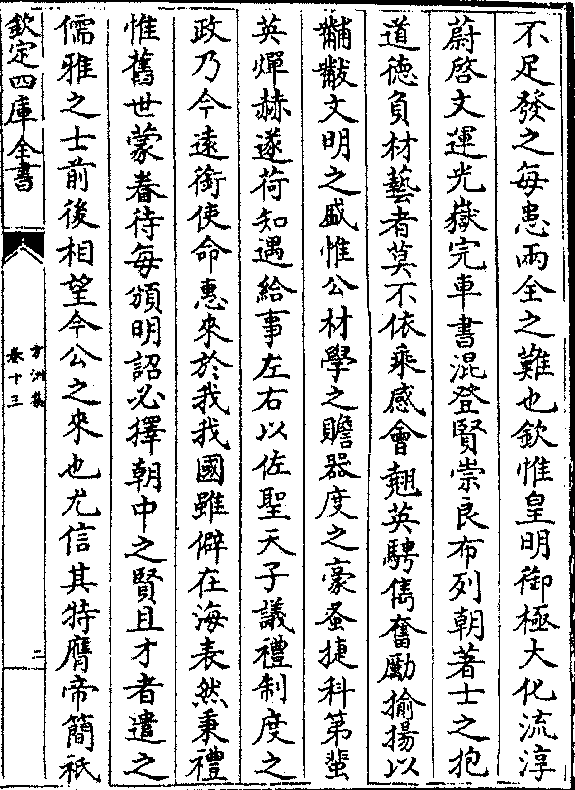 不足發之每患兩全之難也欽惟皇明御極大化流淳
蔚啓文運光嶽完車書混登賢崇良布列朝著士之抱
道德負材藝者莫不依乘感會翹英騁儁奮勵揄揚以
黼黻文明之盛惟公材學之贍器度之豪蚤捷科第蜚
英燀赫遂荷知遇給事左右以佐聖天子議禮制度之
政乃今遠銜使命惠來於我我國雖僻在海表然秉禮
惟舊世蒙眷待每頒明詔必擇朝中之賢且才者遣之
儒雅之士前後相望今公之來也尤信其特膺帝簡祇
欽定四庫全書
方洲集
卷十三
二